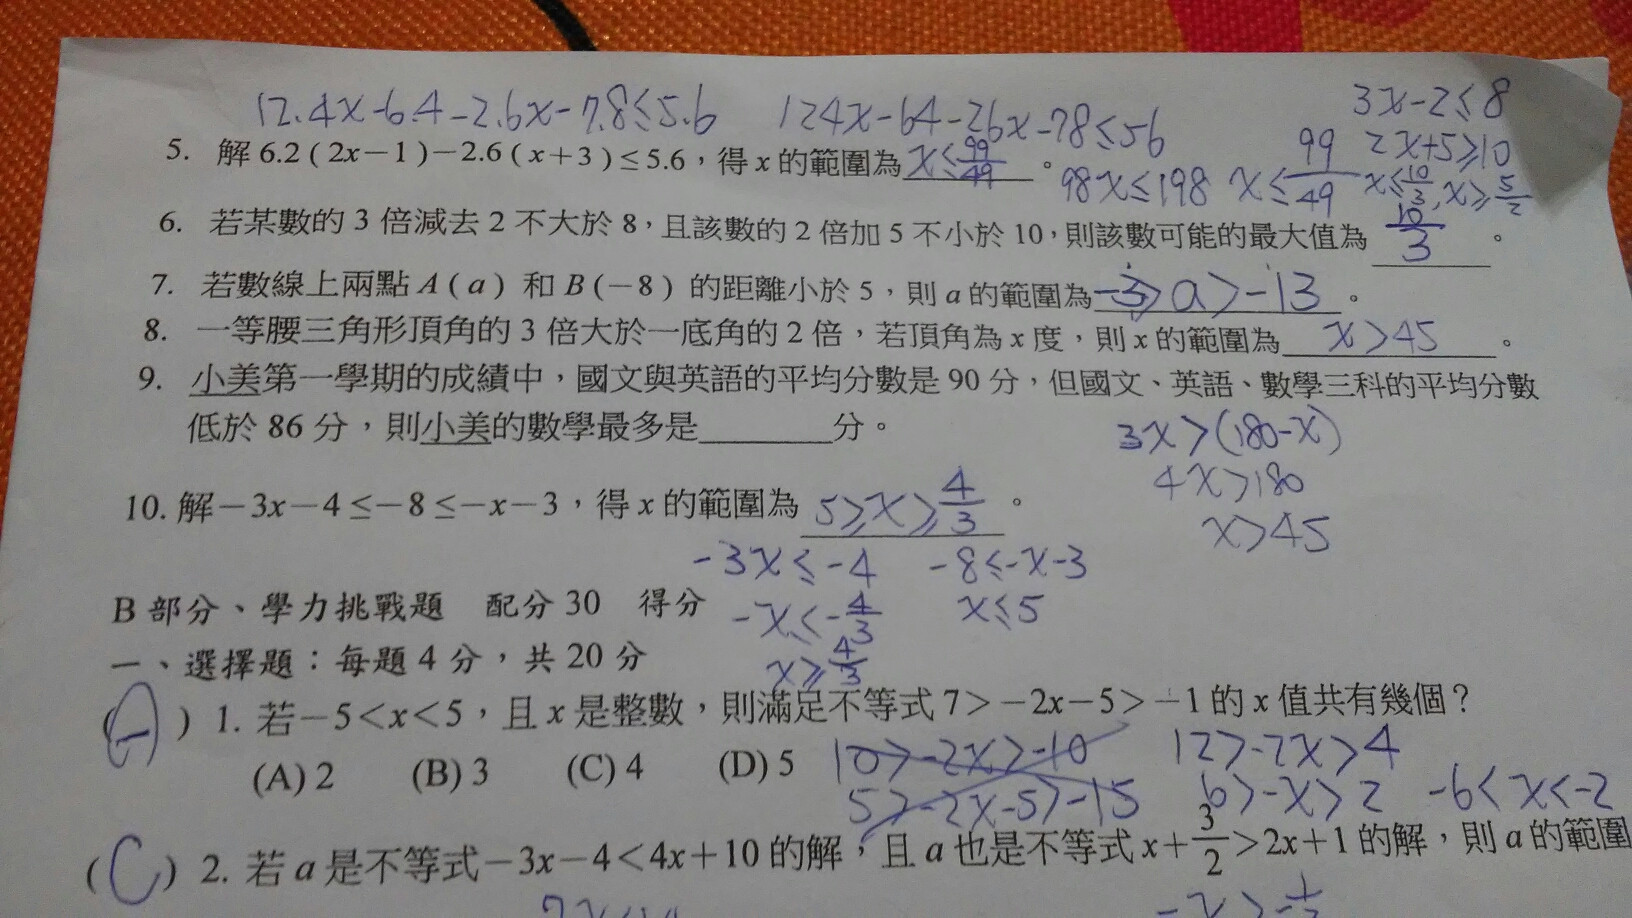 12.4x-6.4-2.6x-7.8≤5.6 124x-64-26x-78≤56 3x-2≤8
5. 解 6.2 ( 2x－1 )－2.6 ( x＋3 ) ≤ 5.6，得 x 的範圍為 x≤99/49 。 99 2x+5≥10
98x≤198 x≤99/49 x≤10/3, x≥5/2
6. 若某數的 3 倍減去 2 不大於 8，且該數的 2 倍加 5 不小於 10，則該數可能的最大值為 10/3 。
7. 若數線上兩點 A ( a ) 和 B (－8 ) 的距離小於 5，則 a 的範圍為 -3>a>-13 。
8. 一等腰三角形頂角的 3 倍大於一底角的 2 倍，若頂角為 x 度，則 x 的範圍為 x>45 。
9. 小美第一學期的成績中，國文與英語的平均分數是 90 分，但國文、英語、數學三科的平均分數
低於 86 分，則小美的數學最多是______分。 3x>(180-x)
4x>180
10. 解－3x－4 ≤－8 ≤－x－3，得 x 的範圍為 5≥x≥4/3 。 x>45
-3x≤-4 -8≤-x-3
B 部分、學力挑戰題 配分 30 得分 -x≤-4/3 x≤5
一、選擇題：每題 4 分，共 20 分 x≥4/3
(A) 1. 若－5＜x＜5，且 x 是整數，則滿足不等式 7＞－2x－5＞－1 的 x 值共有幾個？
(A) 2 (B) 3 (C) 4 (D) 5 10>-2x>-10 12>-2x>4
5>-2x-5>-15 6>-x>2 -6<x<-2
(C) 2. 若 a 是不等式－3x－4＜4x＋10 的解，且 a 也是不等式 x＋3/2＞2x＋1 的解，則 a 的範圍